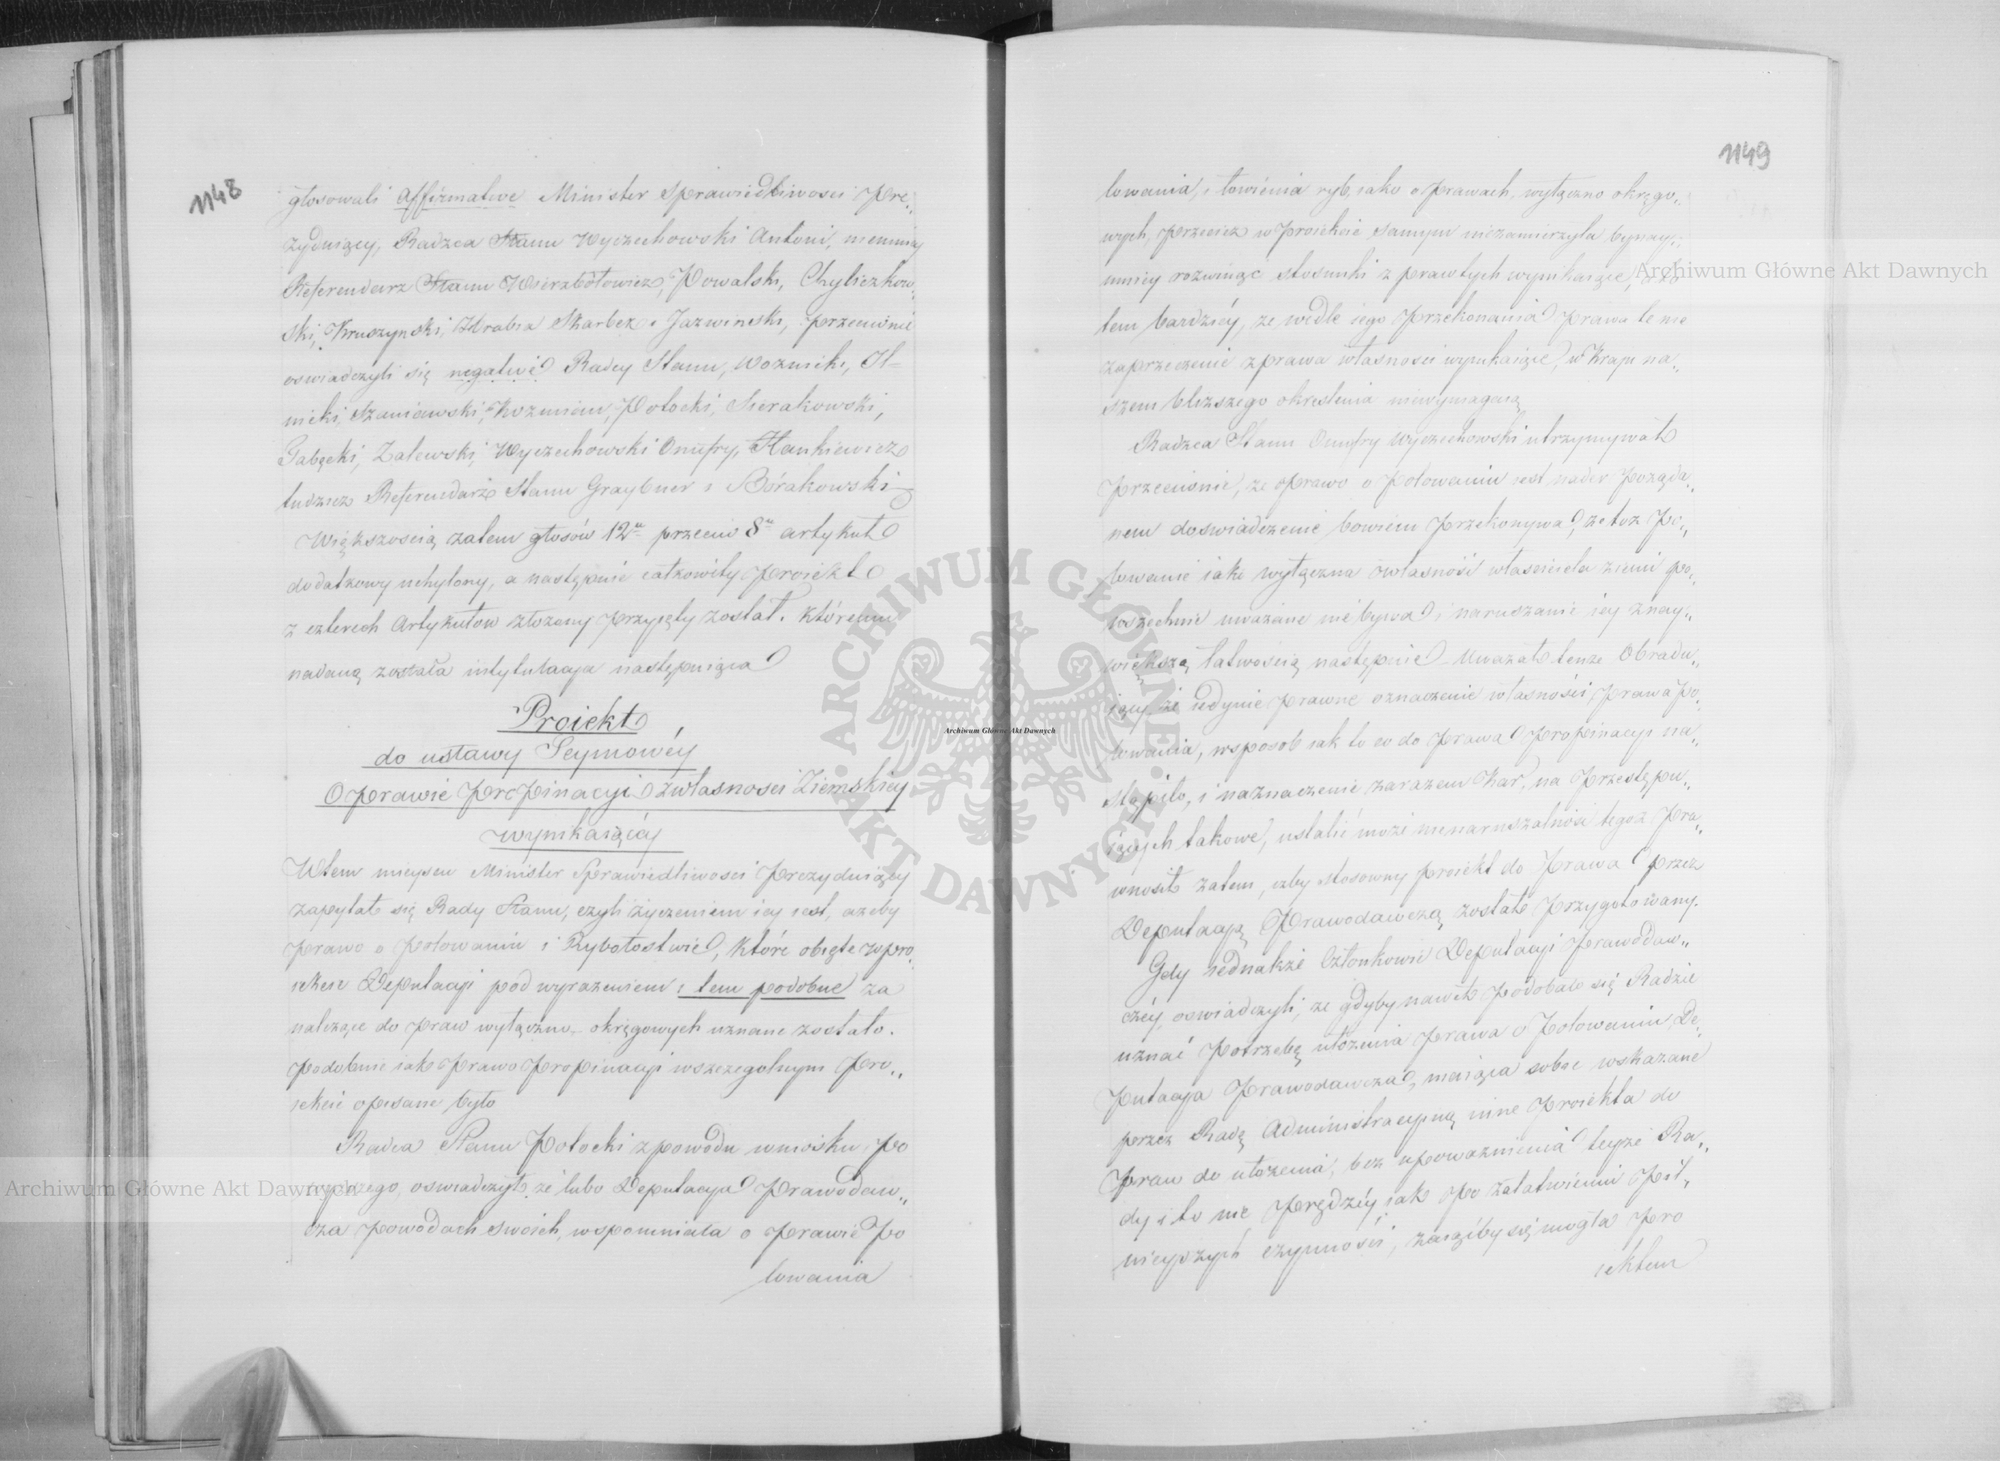 1148
głosowali Affirmative Minister Sprawiedliwosci Pre„
zyduiący, Radzca Stanu Wyczechowski Antoni, niemniey
Referendarz Stanu Wierzbołowicz, Kowalski, Chyliczkow„
ski, Kruszynski, Hrabia Skarbek i Jazwinski, przeciwnie
oswiadczyli się negativé Radcy Stanu, Woznicki,
nicki, Szaniawski, Kozmian, Potocki, Sierakowski,
Gabecki, Zalewski, Wyczechowski Onufry, Hankiewicz
tudzież Referendarze Stanu Graybner i Borakowski
Większoscią zatem głosów 12u przeciw 8u artykuł
dodatkowy uchylony, a następnie całkowity Proiekt
z czterech Artykułow złożony przyięty został. któremu
nadaną została intytulacya następuiąca
Proiekt
do ustawy Seymowéy
O prawie Propinacyi z własnosci Ziemskiey
wynikaiącéy
W tem mieyscu Minister Sprawiedliwosci Prezyduiący
zapytał się Rady Stanu, czyli życzeniem iey iest, azeby
prawo o polowaniu i Rybołostwie, które obięte w pro„
iekcie Deputacyi pod wyrazeniem i tem podobne za
nalezące do praw wyłączno- okręgowych uznane zostało.
podobnie iak prawo Propinacyi w szczegolnym Pro„
iekcie opisane było
Radca Stanu Potocki z powodu wniosku po
wyższego, oswiadczył ze lubo Deputacya Prawodaw„
cza w powodach swoich, wspomniała o prawie Po
lowania
1149
lowania, i łowienia ryb, iako o prawach, wyłączno okręgo„
wych, przecież w proiekcie samym niezamierzyła bynay„
mniey rozwinąc stosunki z praw tych wynikaiące, a to
tem bardziéy, ze wedle iego przekonania prawa te nie
zaprzeczenie z prawa własnosci wynikaiące, w Kraju na„
szem blizszego okreslenia niewymagaią
Radzca Stanu Onufry Wyczechowski utrzymywał
przeciwnie, ze prawo o polowaniu iest nader pożąda„
nem doswiadczenie bowiem przekonywa, ze toz Po„
lowanie iako wyłączna własność własciciela ziemi po„
wszechnie uważane nie bywa, i naruszanie iey z nay„
większą łatwoscią następuie. Uwazał tenze Obradu„
iący, że iedynie prawne oznaczenie własności Prawa Po„
lowania, w sposob iak to co do Prawa Propinacyi na„
stąpiło, i naznaczenie zarazem Kar, na przestępu„
iących takowe, ustalić może nienaruszalność tegoż Pra„
wnosił zatem, ażby stosowny proiekt do Prawa przez
Deputacyą Prawodawczą został przygotowany.
Gdy iednakże Członkowie Deputacyi Prawodaw„
czéy, oswiadczyli, ze gdyby nawet podobało się Radzie
uznać potrzebę ułożenia prawa o Polowaniu, De„
putacya Prawodawcza, maiąca sobie wskazane
przez Radę Administracyiną inne proiekta do
praw do ułożenia, bez upoważnienia teyże Ra„
dy i to nie prędzéy iak po załatwieniu pil„
nieyszych czynności, zaiąćby się mogła Pro
iektem
Archiwum Główne Akt Dawnych
Archiwum Główne Akt Dawnych
Archiwum Główne Akt Dawnych
ARCHIWUM GŁÓWNE · AKT DAWNYCH ·